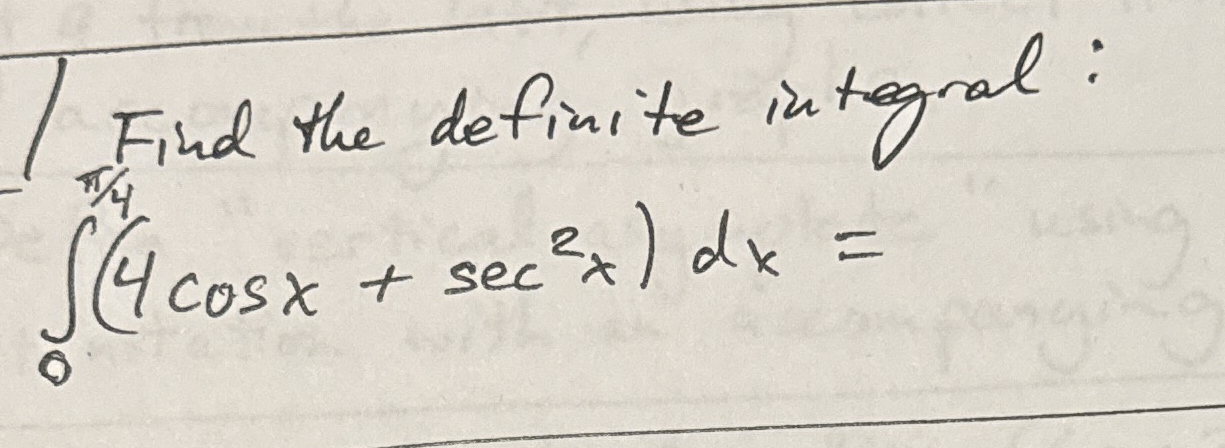 1 Find the definite integral:
π/4
∫(4cosx + sec²x) dx =
0